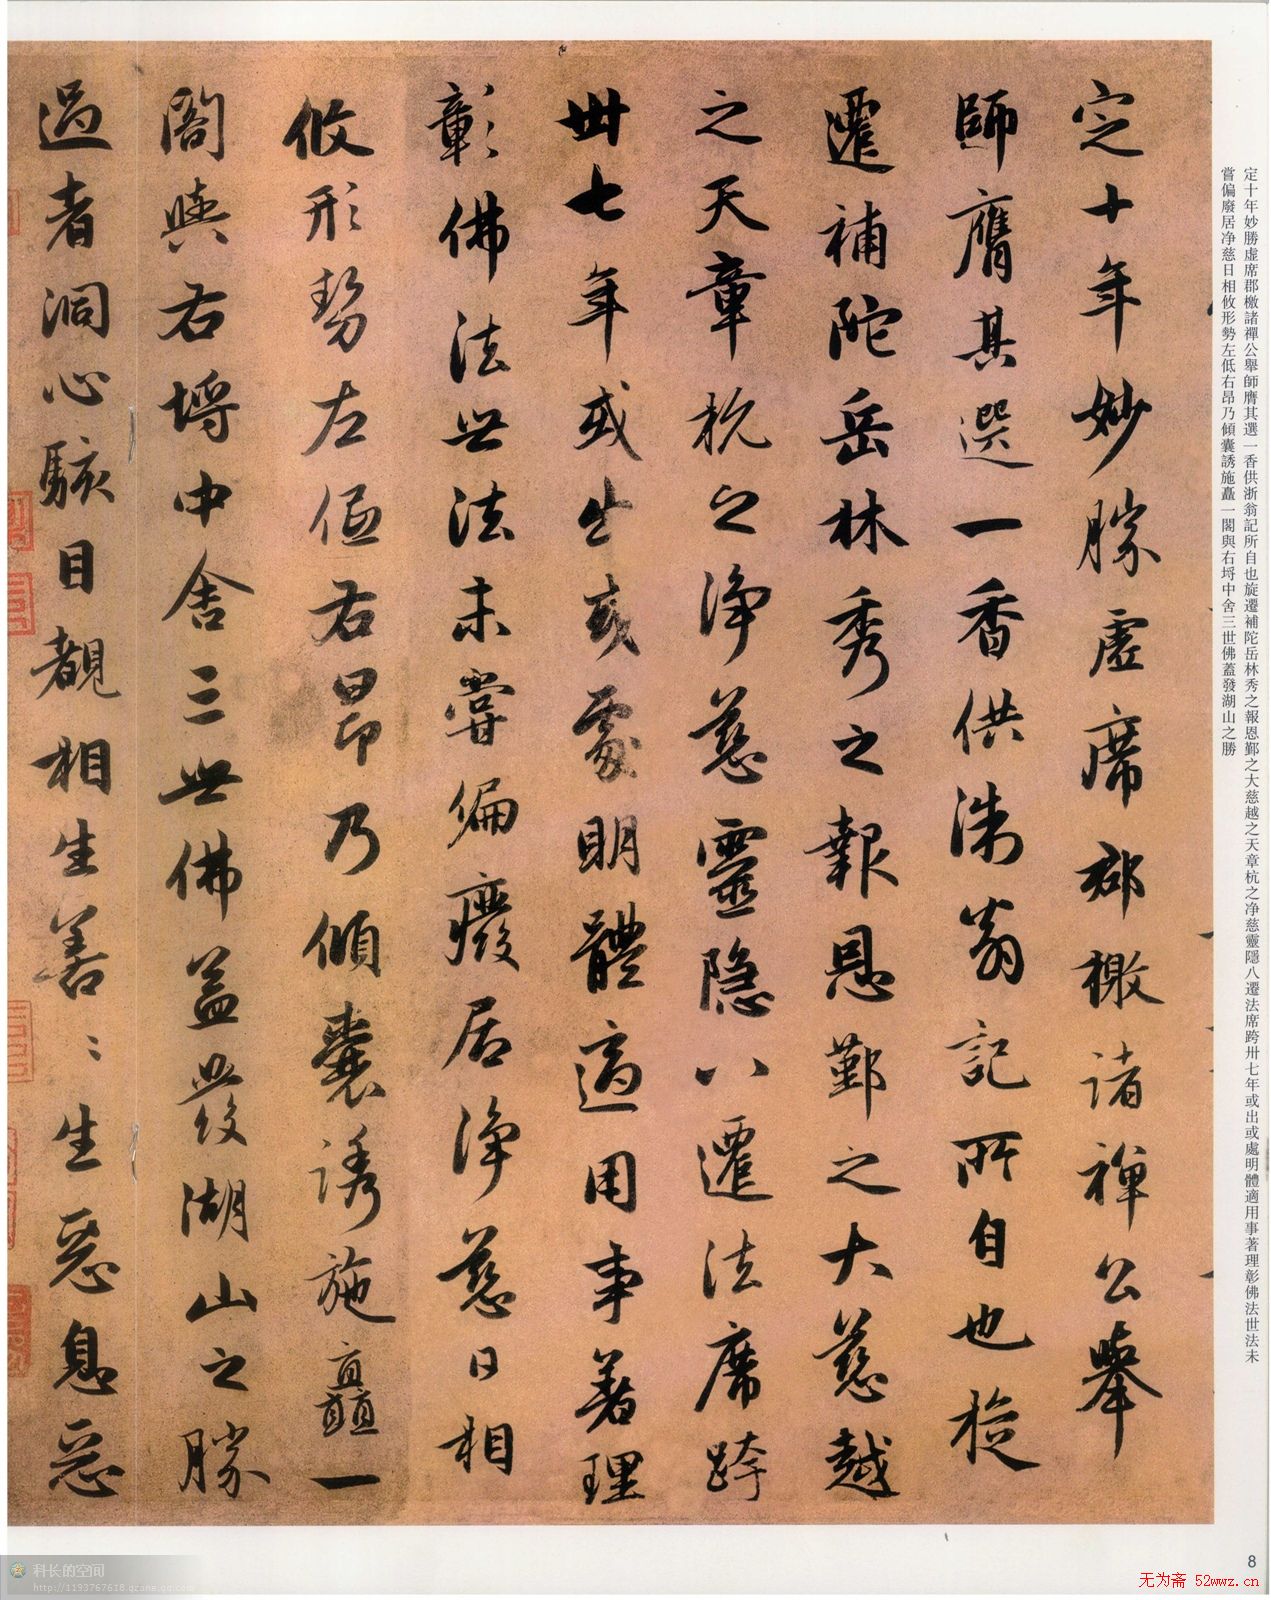 定十年妙勝虛席郡檄諸禪公舉
師膺其選一香供浙翁記所自也旋
遷補陀岳林秀之報恩鄞之大慈越
之天章杭之淨慈靈隱八遷法席跨
卅七年或出或處明體適用事著理
彰佛法世法未嘗偏廢居淨慈日相
攸形勢左低右昂乃傾囊誘施矗一
閣與右埒中舍三世佛蓋發湖山之勝
過者洞心駭目覩相生善〻生惡息惡
定十年妙勝虛席郡檄諸禪公舉師膺其選一香供浙翁記所自也旋遷補陀岳林秀之報恩鄞之大慈越之天章杭之净慈靈隱八遷法席跨卅七年或出或處明體適用事著理彰佛法世法未
嘗偏廢居净慈日相攸形勢左低右昂乃傾囊誘施矗一閣與右埒中舍三世佛蓋發湖山之勝
8
科长的空间
http://1193767618.qzone.qq.com
无为斋 52wwz.cn